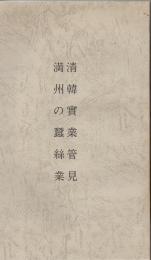 清韓實業管見
満州の蠶絲業